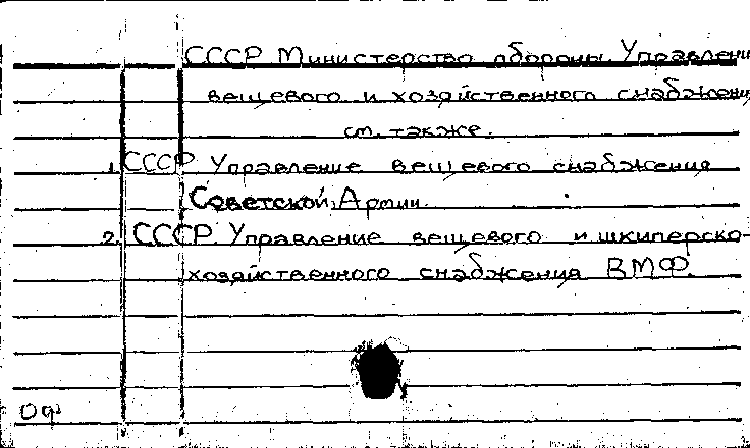 СССР Министерство обороны. Управлени
вещевого и хозяйственного снабжени
см. также.
1. СССР Управление вещевого снабжения
Советской Армии.
2. СССР. Управление вещевого и шкиперско-
хозяйственного снабжения ВМФ.
ОФ